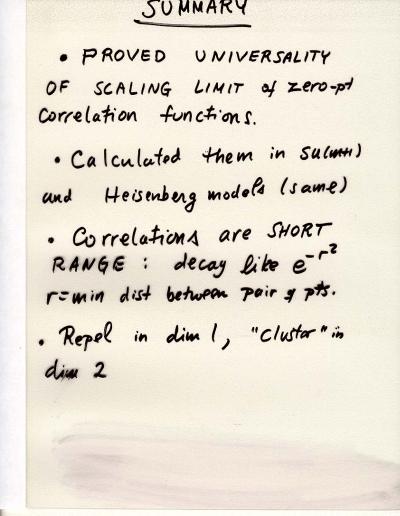 SUMMARY
• PROVED UNIVERSALITY
OF SCALING LIMIT of zero-pt
Correlation functions.
• Calculated them in SU(m+1)
and Heisenberg models (same)
• Correlations are SHORT
RANGE: decay like e^{-r^2}
r=min dist between pair of pts.
• Repel in dim 1, "Cluster" in
dim 2